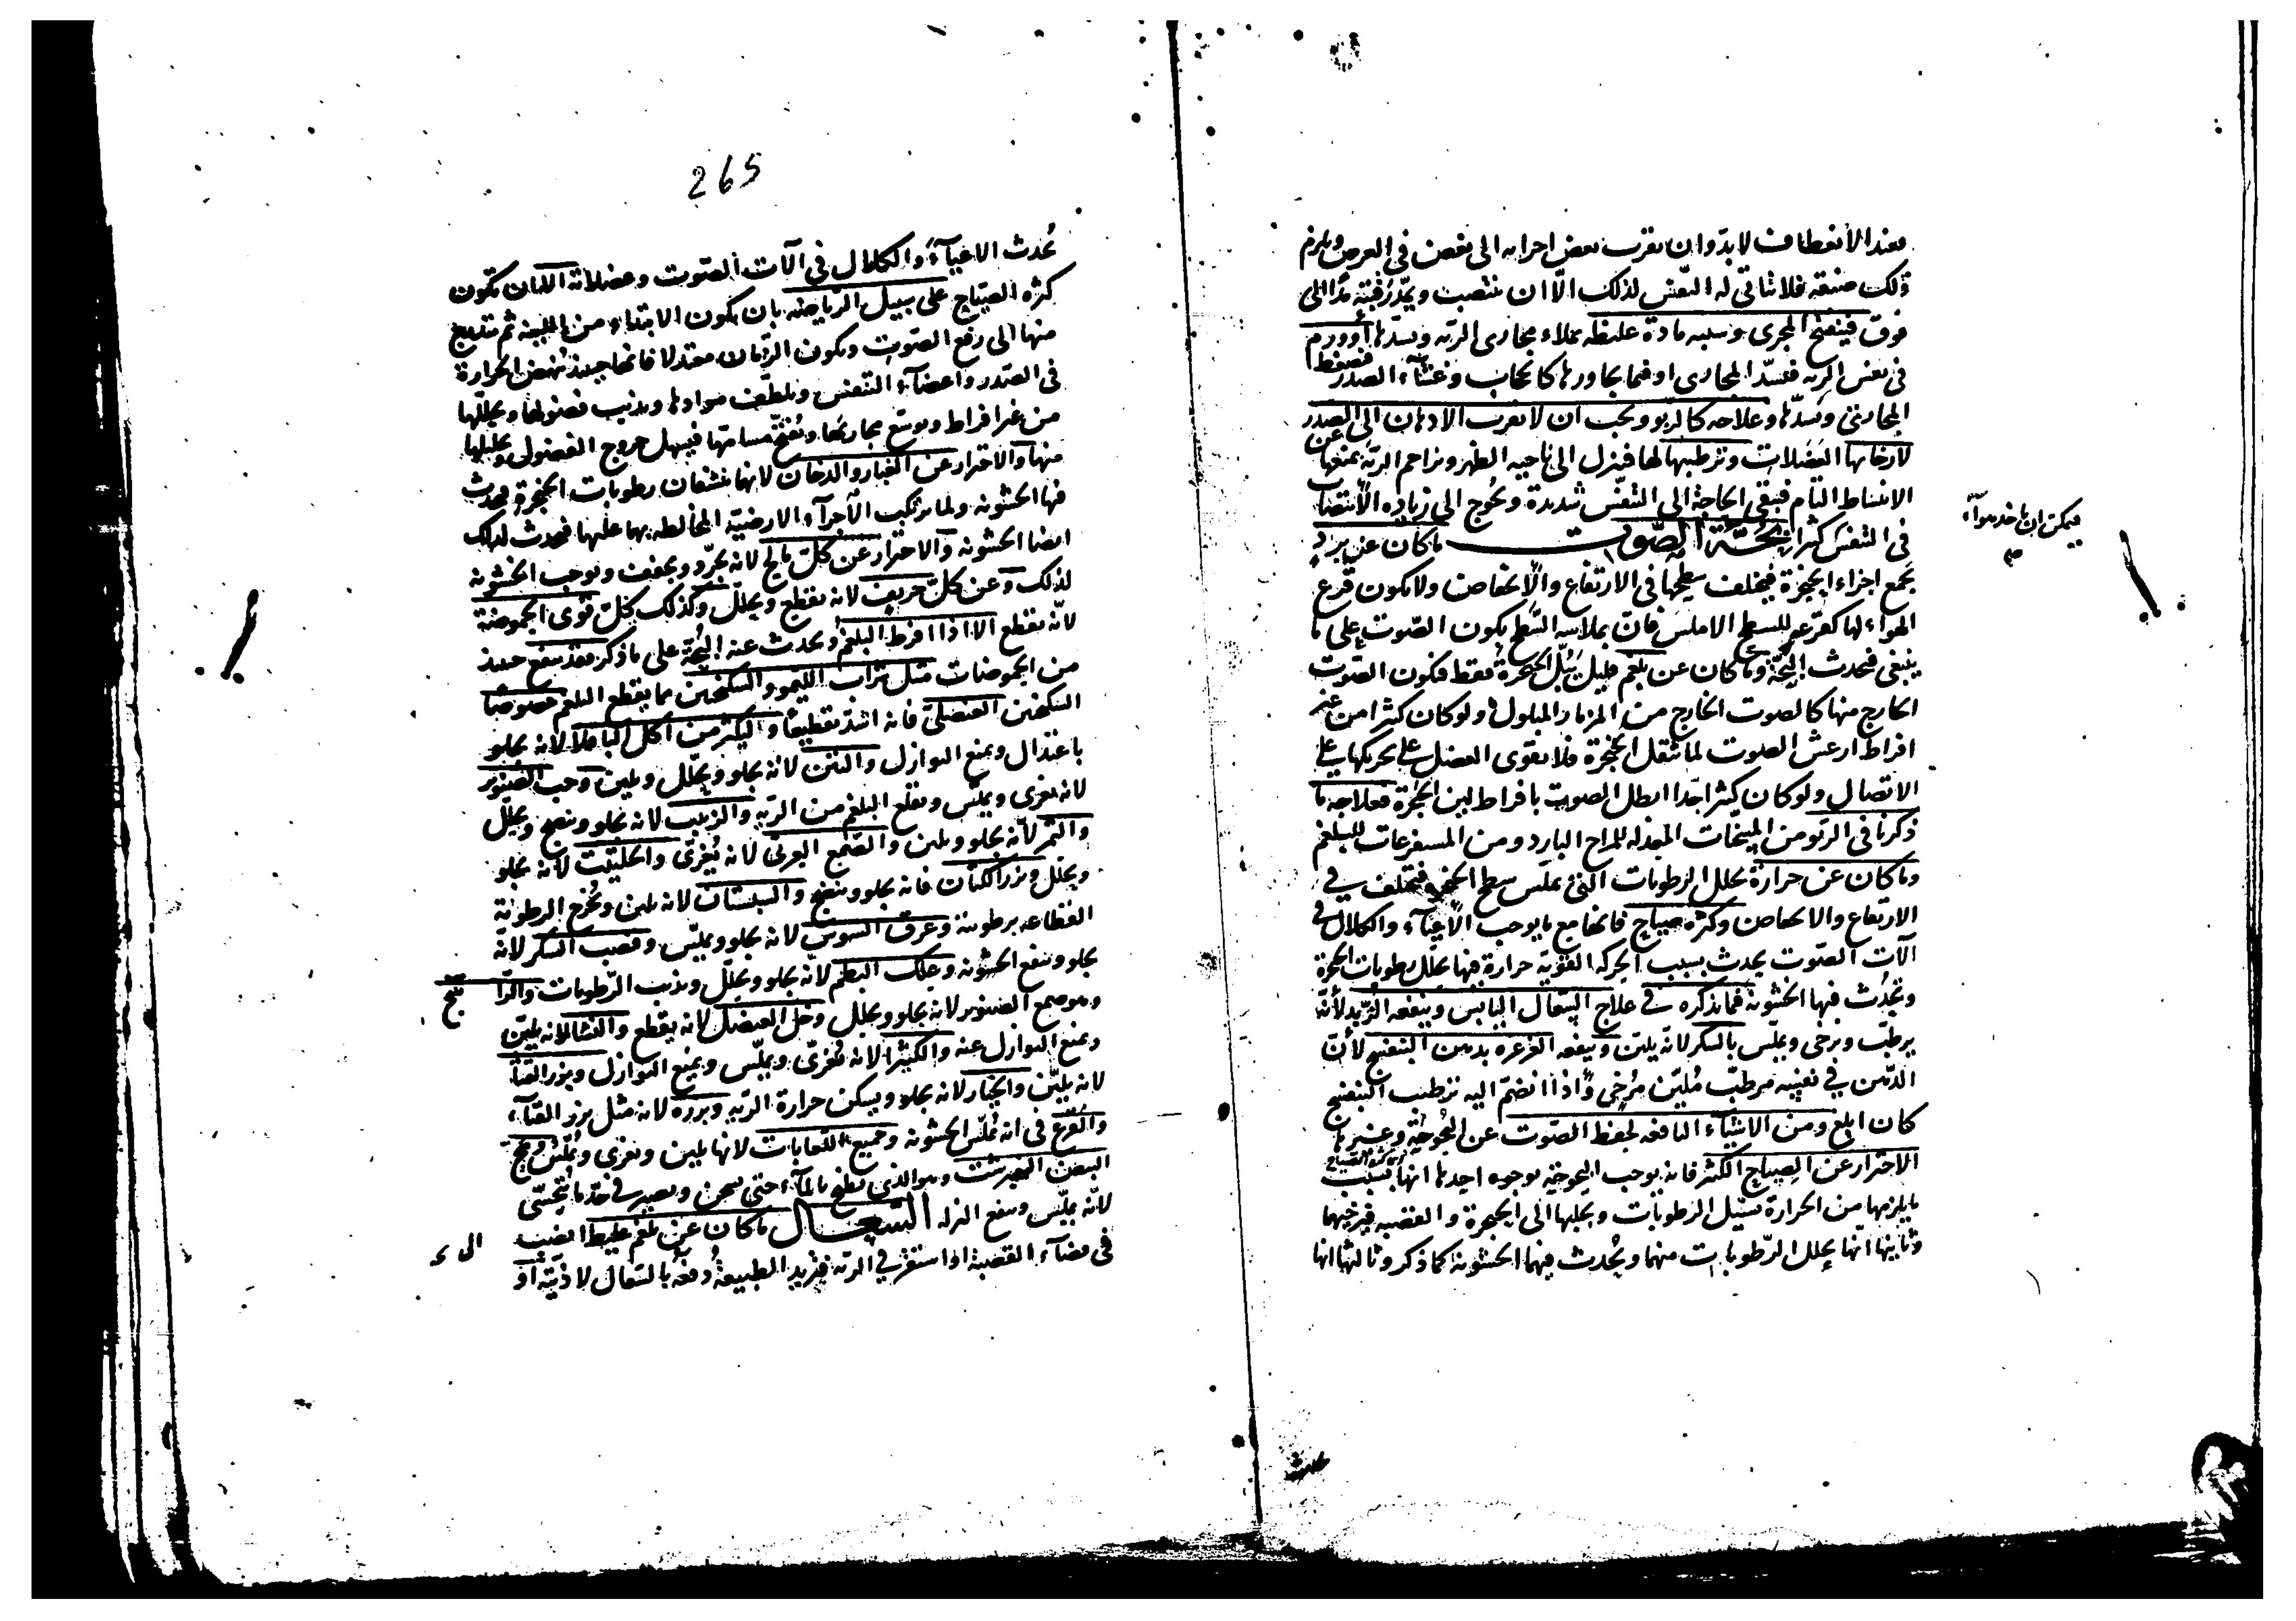 فعند الانعطاف لابد وان يقرب بعض اجزائه الى بعض في العرض ويلزم
ذلك ضيقه فلا يتأتى له النفس لذلك الا ان ينتصب ويمد رقبته مدا الى
فوق فينفتح المجرى وسببه مادة غليظة تملاء مجارى الرئة وتسدها أو ورم
في نفس الرئة فتسد المجارى او فيما يجاورها كالحجاب وغشاء الصدر فضغط
المجارى وتسدها وعلاجه كالربو ويجب ان لا تقرب الادهان الى الصدر
لارخائها العضلات وترطيبها لها فينزل الى ناحية الظهر ويزاحم الرئة يمنعها عن
الانبساط التام فيبقى الحاجة الى التنفس شديدة ويحوج الى زيادة الانتصاب
في التنفس كثيرا بحة الصوت ما كان عن برد
يجمع اجزاء الحنجرة فيختلف سطحها في الارتفاع والانخفاض ولا يكون قرع
الهواء لها كقرعه للسطح الاملس فان بملاسة السطح يكون الصوت على ما
ينبغى فيحدث البحة وما كان عن بلغم قليل يبل الحنجرة فقط فيكون الصوت
الخارج منها كالصوت الخارج من المزمار المبلول ولو كان كثيرا من غير
افراط ارعش الصوت لما يثقل الحنجرة فلا يقوى العضل على تحريكها على
الاتصال ولو كان كثيرا جدا ابطل الصوت بافراط لين الحنجرة فعلاجه ما
ذكرنا في الربو من المسخنات المعدلة للمزاج البارد ومن المستفرغات للبلغم
وما كان عن حرارة تحلل الرطوبات التى تملس سطح الحنجرة فيختلف في
الارتفاع والانخفاض وكثرة صياح فانها مع ما يوجب الاعياء والكلال في
آلات الصوت يحدث بسبب الحركة القوية حرارة فيها تحلل رطوبات الحنجرة
ويحدث فيها الخشونة فما يذكره في علاج السعال اليابس وينفعه الزبد لأنه
يرطب ويرخى ويملس بالسكر لانه يلين وينفعه الغرغرة بدهن البنفسج لأن
الدهن في نفسه مرطب ملين مرخى واذا انضم اليه ترطيب البنفسج
كان ابلغ ومن الاشياء النافعة لحفظ الصوت عن البحوحة وغيرها
الاحتراز عن الصياح الكثير فانه يوجب البحوحة بوجوه احدها انها بسبب
ما يلزمها من الحرارة تسيل الرطوبات ويجلبها الى الحنجرة و القصبة فيرخيهما
وثانيها انها تحلل الرطوبات منهما ويحدث فيهما الخشونة كما ذكر وثالثها انها
فيمكن ان ياخذ هواء
265
يحدث الاعياء والكلال في آلات الصوت وعضلاته اللهم ان تكون
كثرة الصياح على سبيل الرياضة بان يكون الابتداء من اللينة ثم يتدرج
منها الى رفع الصوت ويكون الزمان معتدلا فانها حينئذ تنهض الحرارة
في الصدر واعضاء التنفس ويلطف موادها ويذيب فضولها ويحللها
من غير افراط ويوسع مجاريها ويفتح مسامها فيسهل خروج الفضول
منها والاحتراز عن الغبار والدخان لانهما ينشفان رطوبات الحنجرة فيحدث
فيها الخشونة ولما يركب الاجزاء الارضية المخالطة بهما عليها فيحدث لذلك
ايضا الخشونة والاحتراز عن كل مالح لانه يجرد ويجفف ويوجب الخشونة
لذلك وعن كل حريف لانه يقطع ويحلل وكذلك كل قوى الحموضة
لأنه يقطع الا اذا افرط البلغم ويحدث عنه البحة على ما ذكر فقد ينفع حينئذ
من الحموضات مثل شراب الليمو والسكنجبين مما يقطع البلغم خصوصا
السكنجبين العنصلى فانه اشد تقطيعا واليكثر من اكل الباقلا لانه يجلو
باعتدال ويمنع النوازل والتين لانه يجلو ويحلل ويلين وحب الصنوبر
لانه يغرى ويملس ويقلع البلغم من الرئة والزبيب لانه يجلو وينضج ويحلل
والتمر لأنه يجلو ويلين والصمغ العربى لانه يغرى والحلتيت لأنه يجلو
ويحلل وبزر الكتان فانه يجلو وينضج والسبستان لانه يلين ويخرج الرطوبة
الفظاعه برطوبته وعرق السوس لانه يجلو ويملس وقصب السكر لأنه
يجلو وينفع الخشونة وعلك البطم لأنه يجلو ويحلل ويذيب الرطوبات والراتينج
وهو صمغ الصنوبر لانه يجلو ويحلل وخل العنصل لانه يقطع والنشا لانه يلين
ويمنع النوازل عنه والكثيرا لانه يغرى ويملس ويمنع النوازل وبزر القثاء
لانه يلين والخيار لانه يجلو ويسكن حرارة الرئة وبزره لانه مثل بزر القثاء
والقرع في انه يملس الخشونة وجميع اللعابات لانها يلين ويغرى ويملس ومح
البيض النيمبرشت وهو الذى يطبخ بالماء حتى يسخن ويصير في حد ما يتحسى
لأنه يملس وينفع النزلة السعال ما كان عن بلغم غليظ انصب
في فضاء القصبة او استقر في الرئة فيريد الطبيعة دفعه بالسعال لاذيته أو